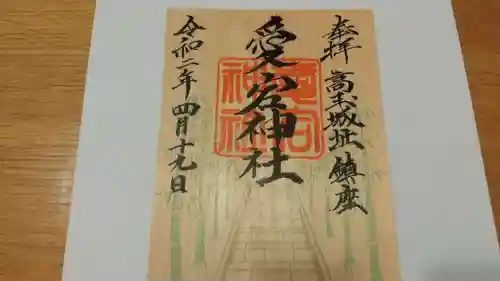 奉拝 高玉城址 鎮座
愛宕神社
令和二年 四月十九日
愛宕神社